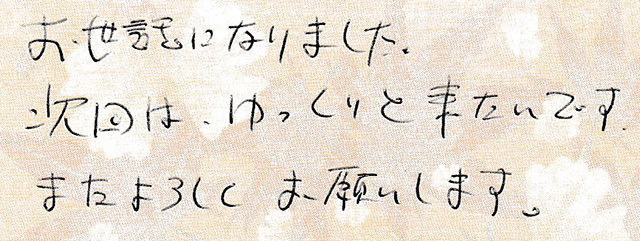 お世話になりました。
次回は、ゆっくりと来たいです.
またよろしく お願いします。